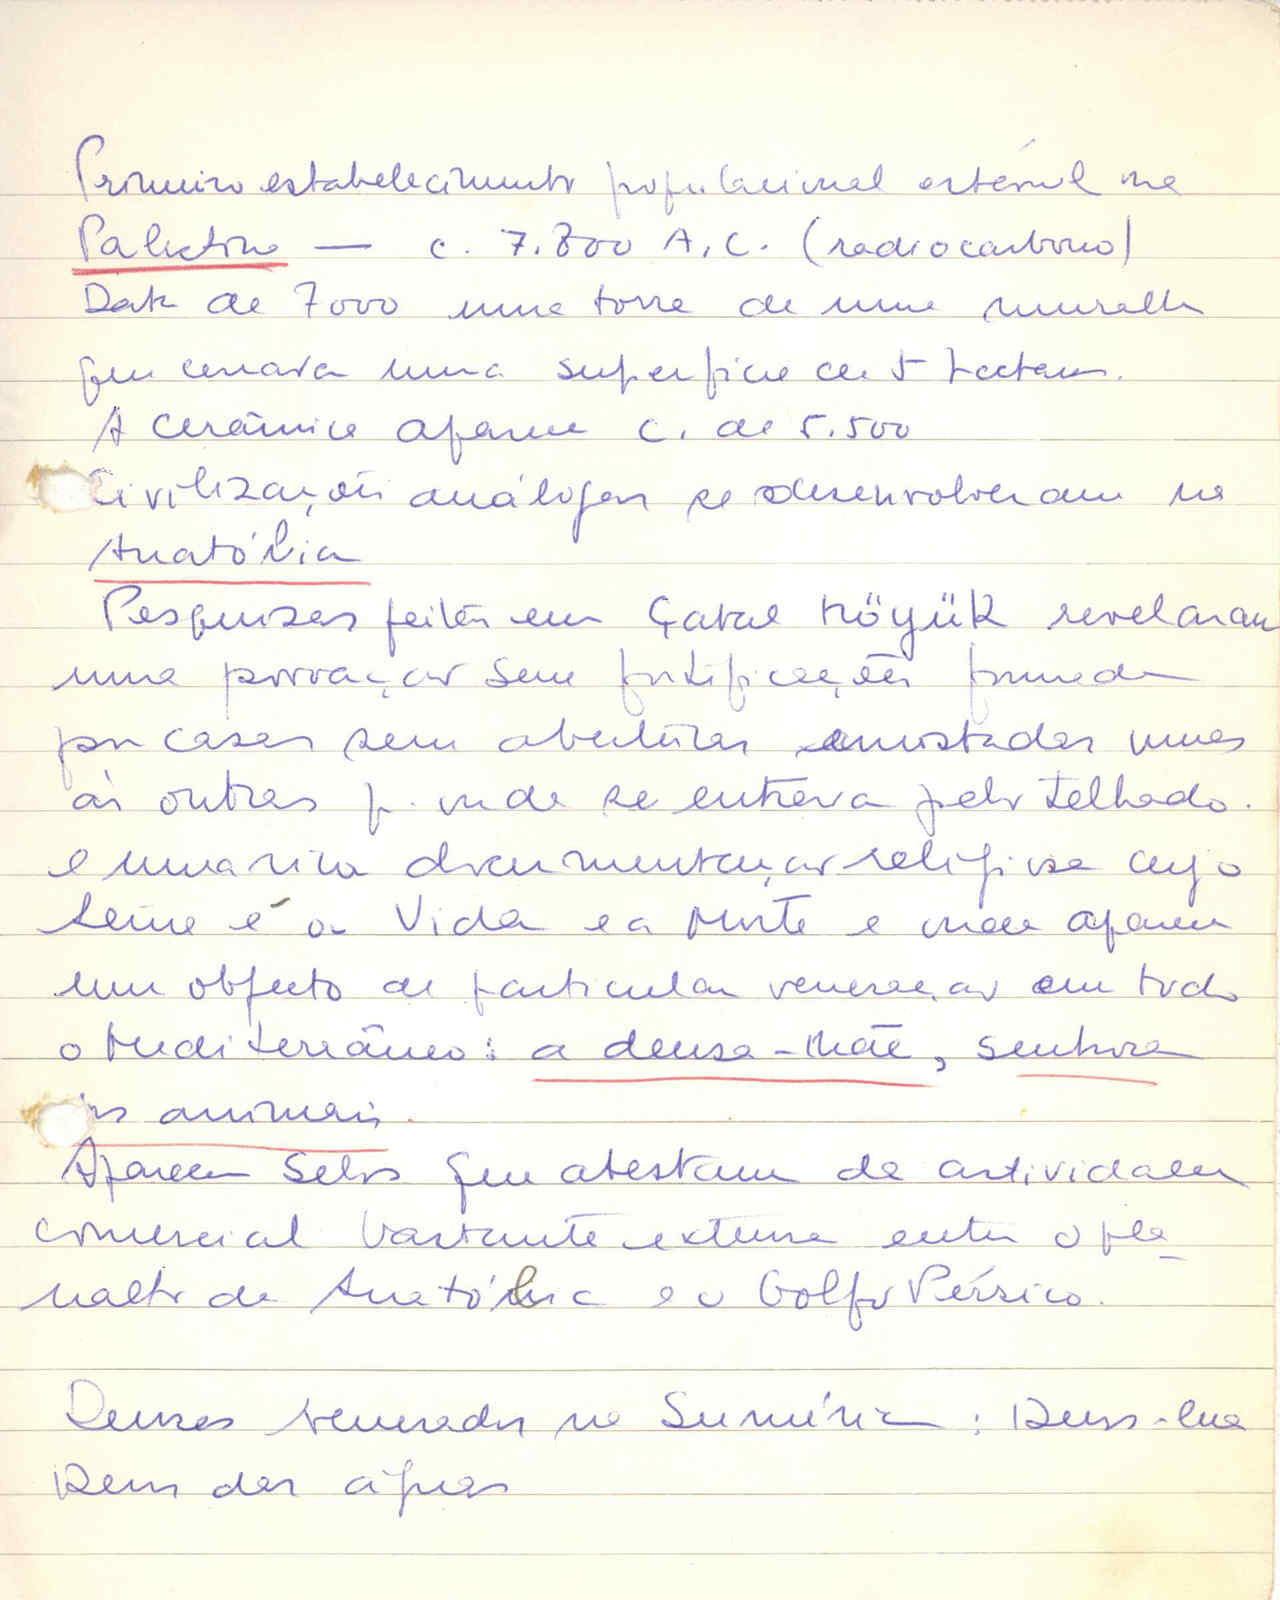 Primeiro estabelecimento populacional estável na
Palestina — c. 7.800 A.C. (radiocarbono)
Data de 7000 uma torre de uma muralha
que cercava uma superfície de 5 hectares.
A cerâmica aparece c. de 5.500
Civilizações análogas se desenvolveram na
Anatólia
Pesquisas feitas em Çatal Höyük revelaram
uma povoação sem fortificações formada
por casas sem aberturas encostadas umas
às outras p. onde se entrava pelo telhado.
e uma rica documentação religiosa cujo
tema é a Vida e a Morte e onde aparece
um objecto de particular veneração em todo
o Mediterrâneo: a deusa-Mãe, senhora
os animais.
Aparecem selos que atestam da actividade
comercial bastante extensa entre o pla-
nalto da Anatólia e o Golfo Pérsico.
Deuses venerados na Suméria: Deus-lua
Deus das águas